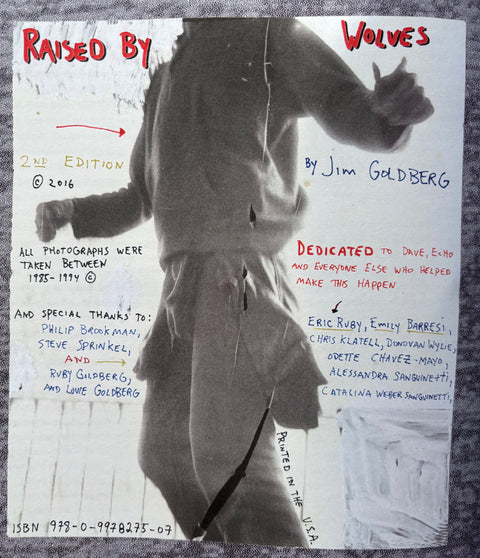 RAISED BY WOLVES
2ND EDITION
© 2016
BY Jim GOLDBERG
ALL PHOTOGRAPHS WERE
TAKEN BETWEEN
1985-1994 ©
DEDICATED TO DAVE, ECHO
AND EVERYONE ELSE WHO HELPED
MAKE THIS HAPPEN
AND SPECIAL THANKS TO:
PHILIP BROOKMAN,
STEVE SPRINKEL,
AND
RUBY GOLDBERG,
AND LOUIE GOLDBERG
ERIC RUBY, EMILY BARRESI,
CHRIS KLATELL, DONOVAN WYLIE,
ODETTE CHAVEZ-MAYO,
ALESSANDRA SANGUINETTI,
CATALINA WEBER SANGUINETTI,
PRINTED IN THE U.S.A.
ISBN 978-0-9978275-07